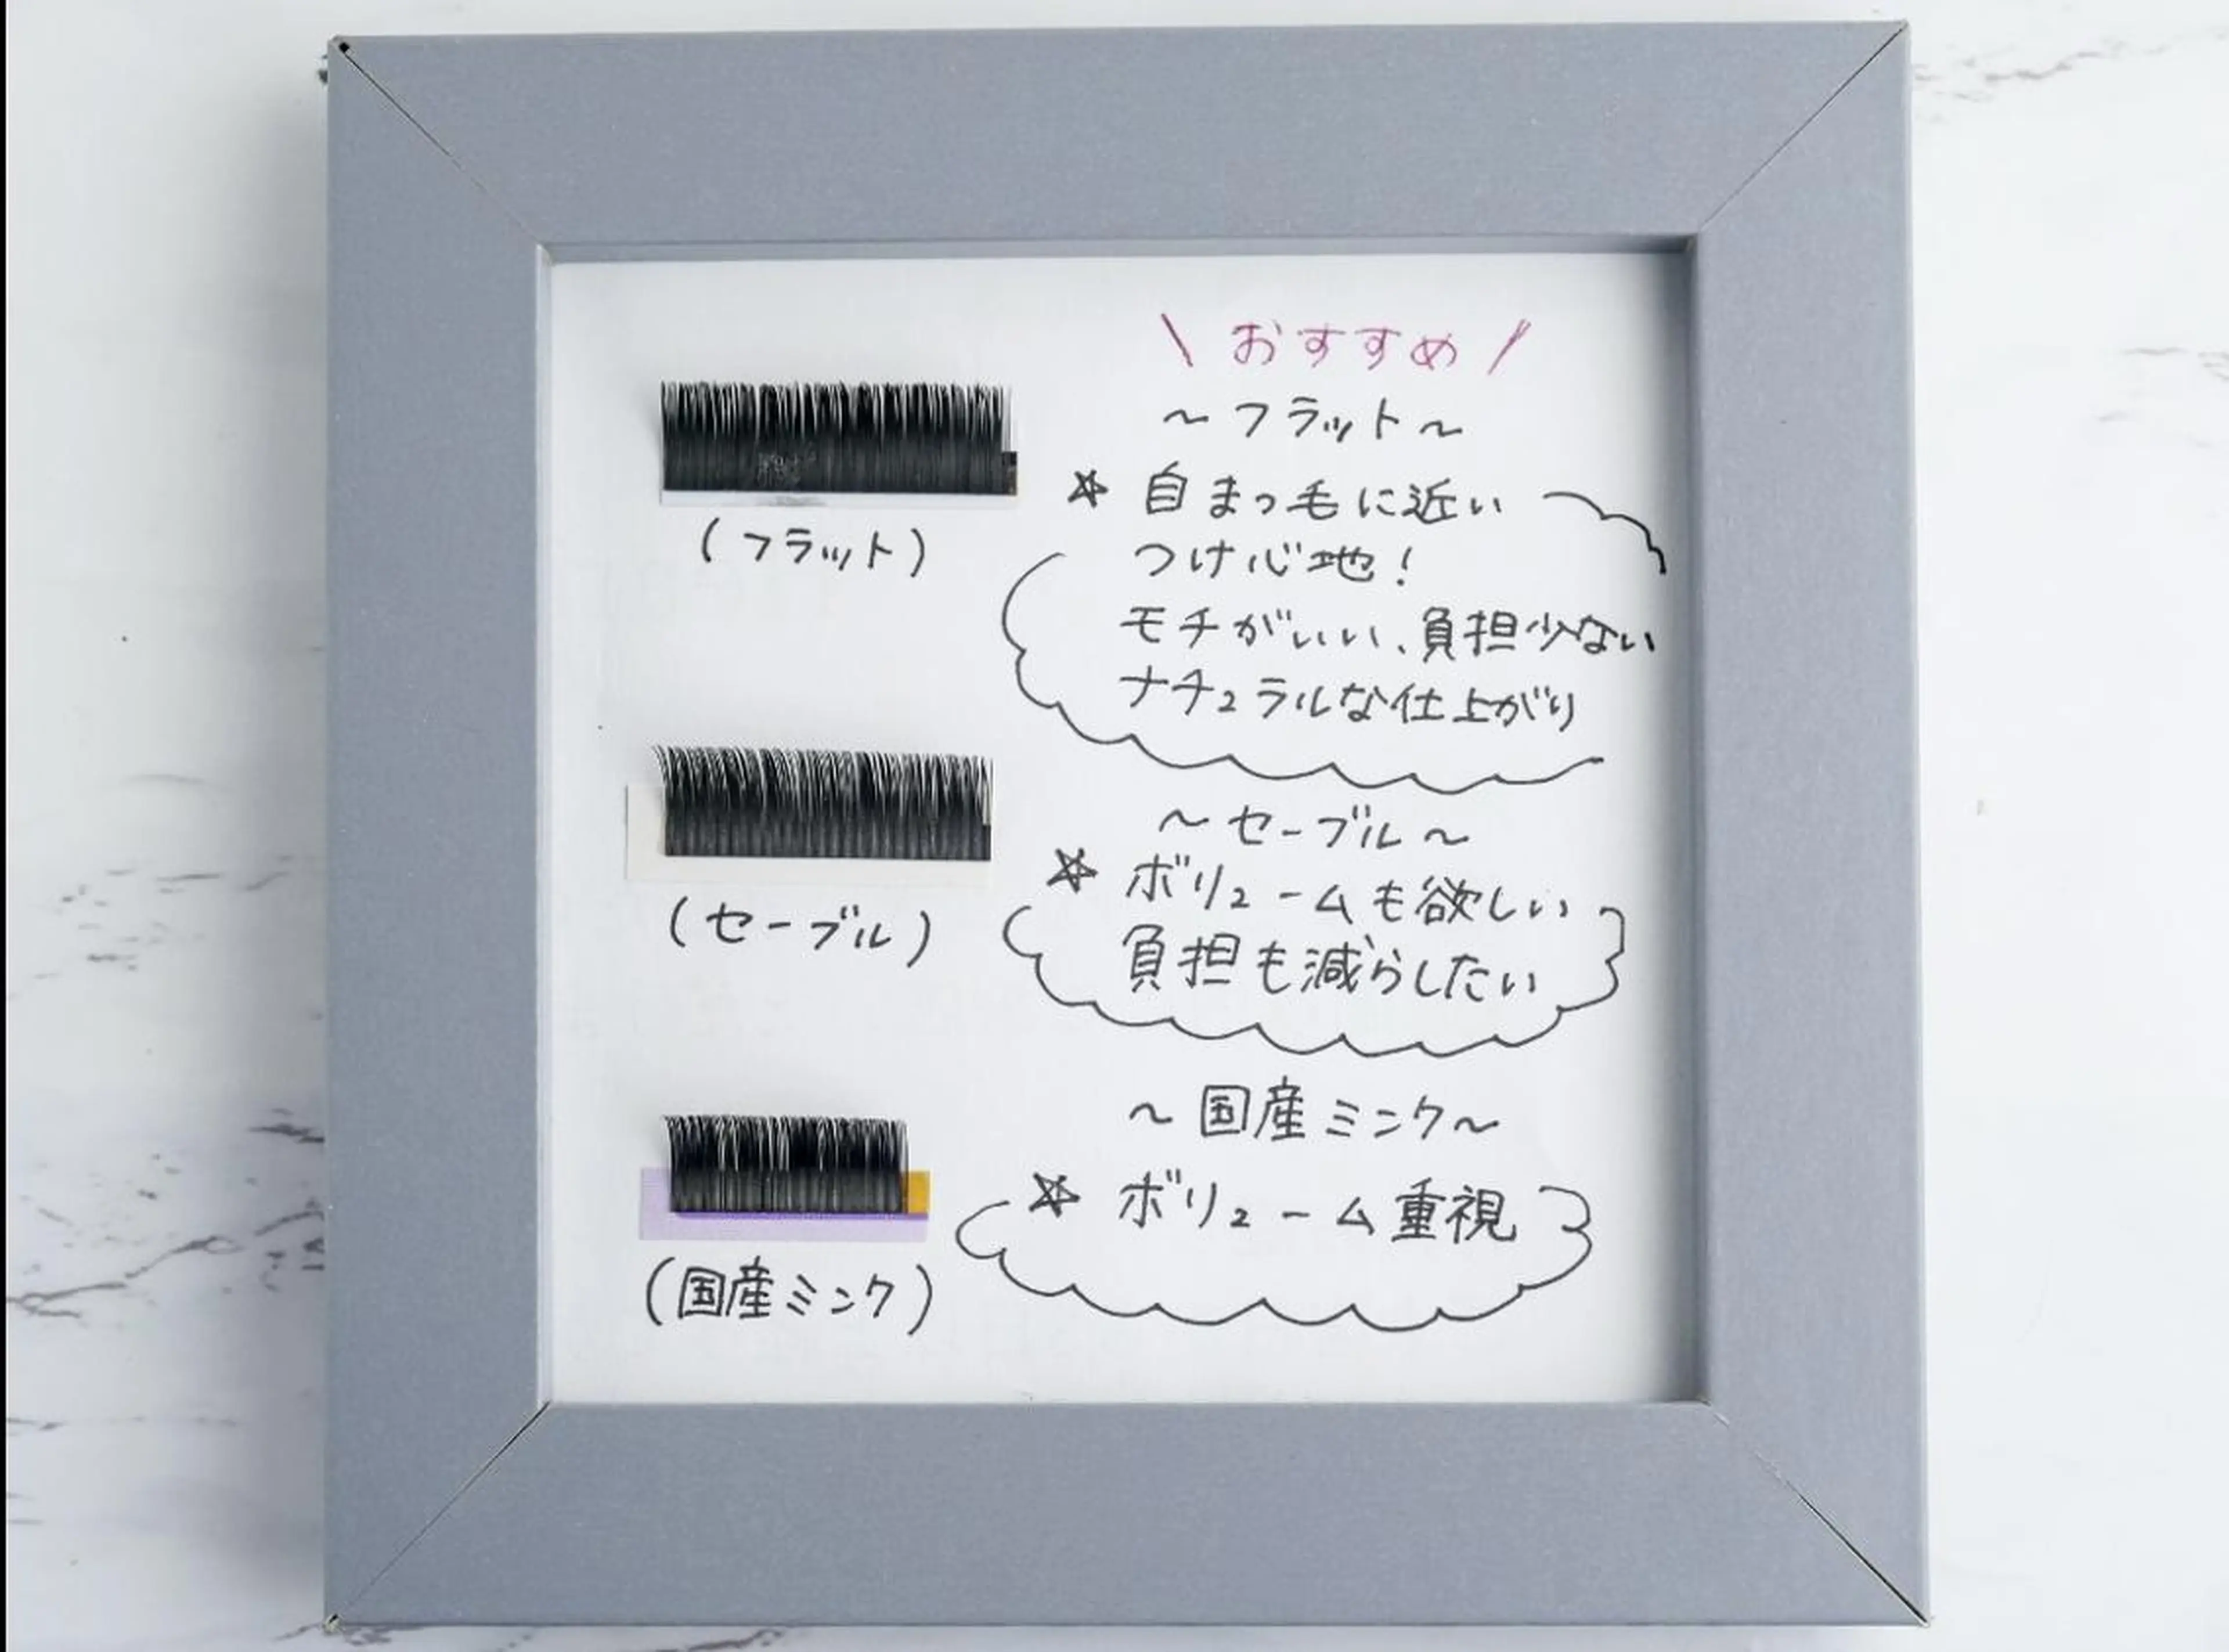 \ おすすめ /
~フラット~
☆ 自まつ毛に近い
つけ心地!
モチがいい、負担少ない
ナチュラルな仕上がり
(フラット)
~セーブル~
☆ ボリュームも欲しい
負担も減らしたい
(セーブル)
~国産ミンク~
☆ ボリューム重視
(国産ミンク)